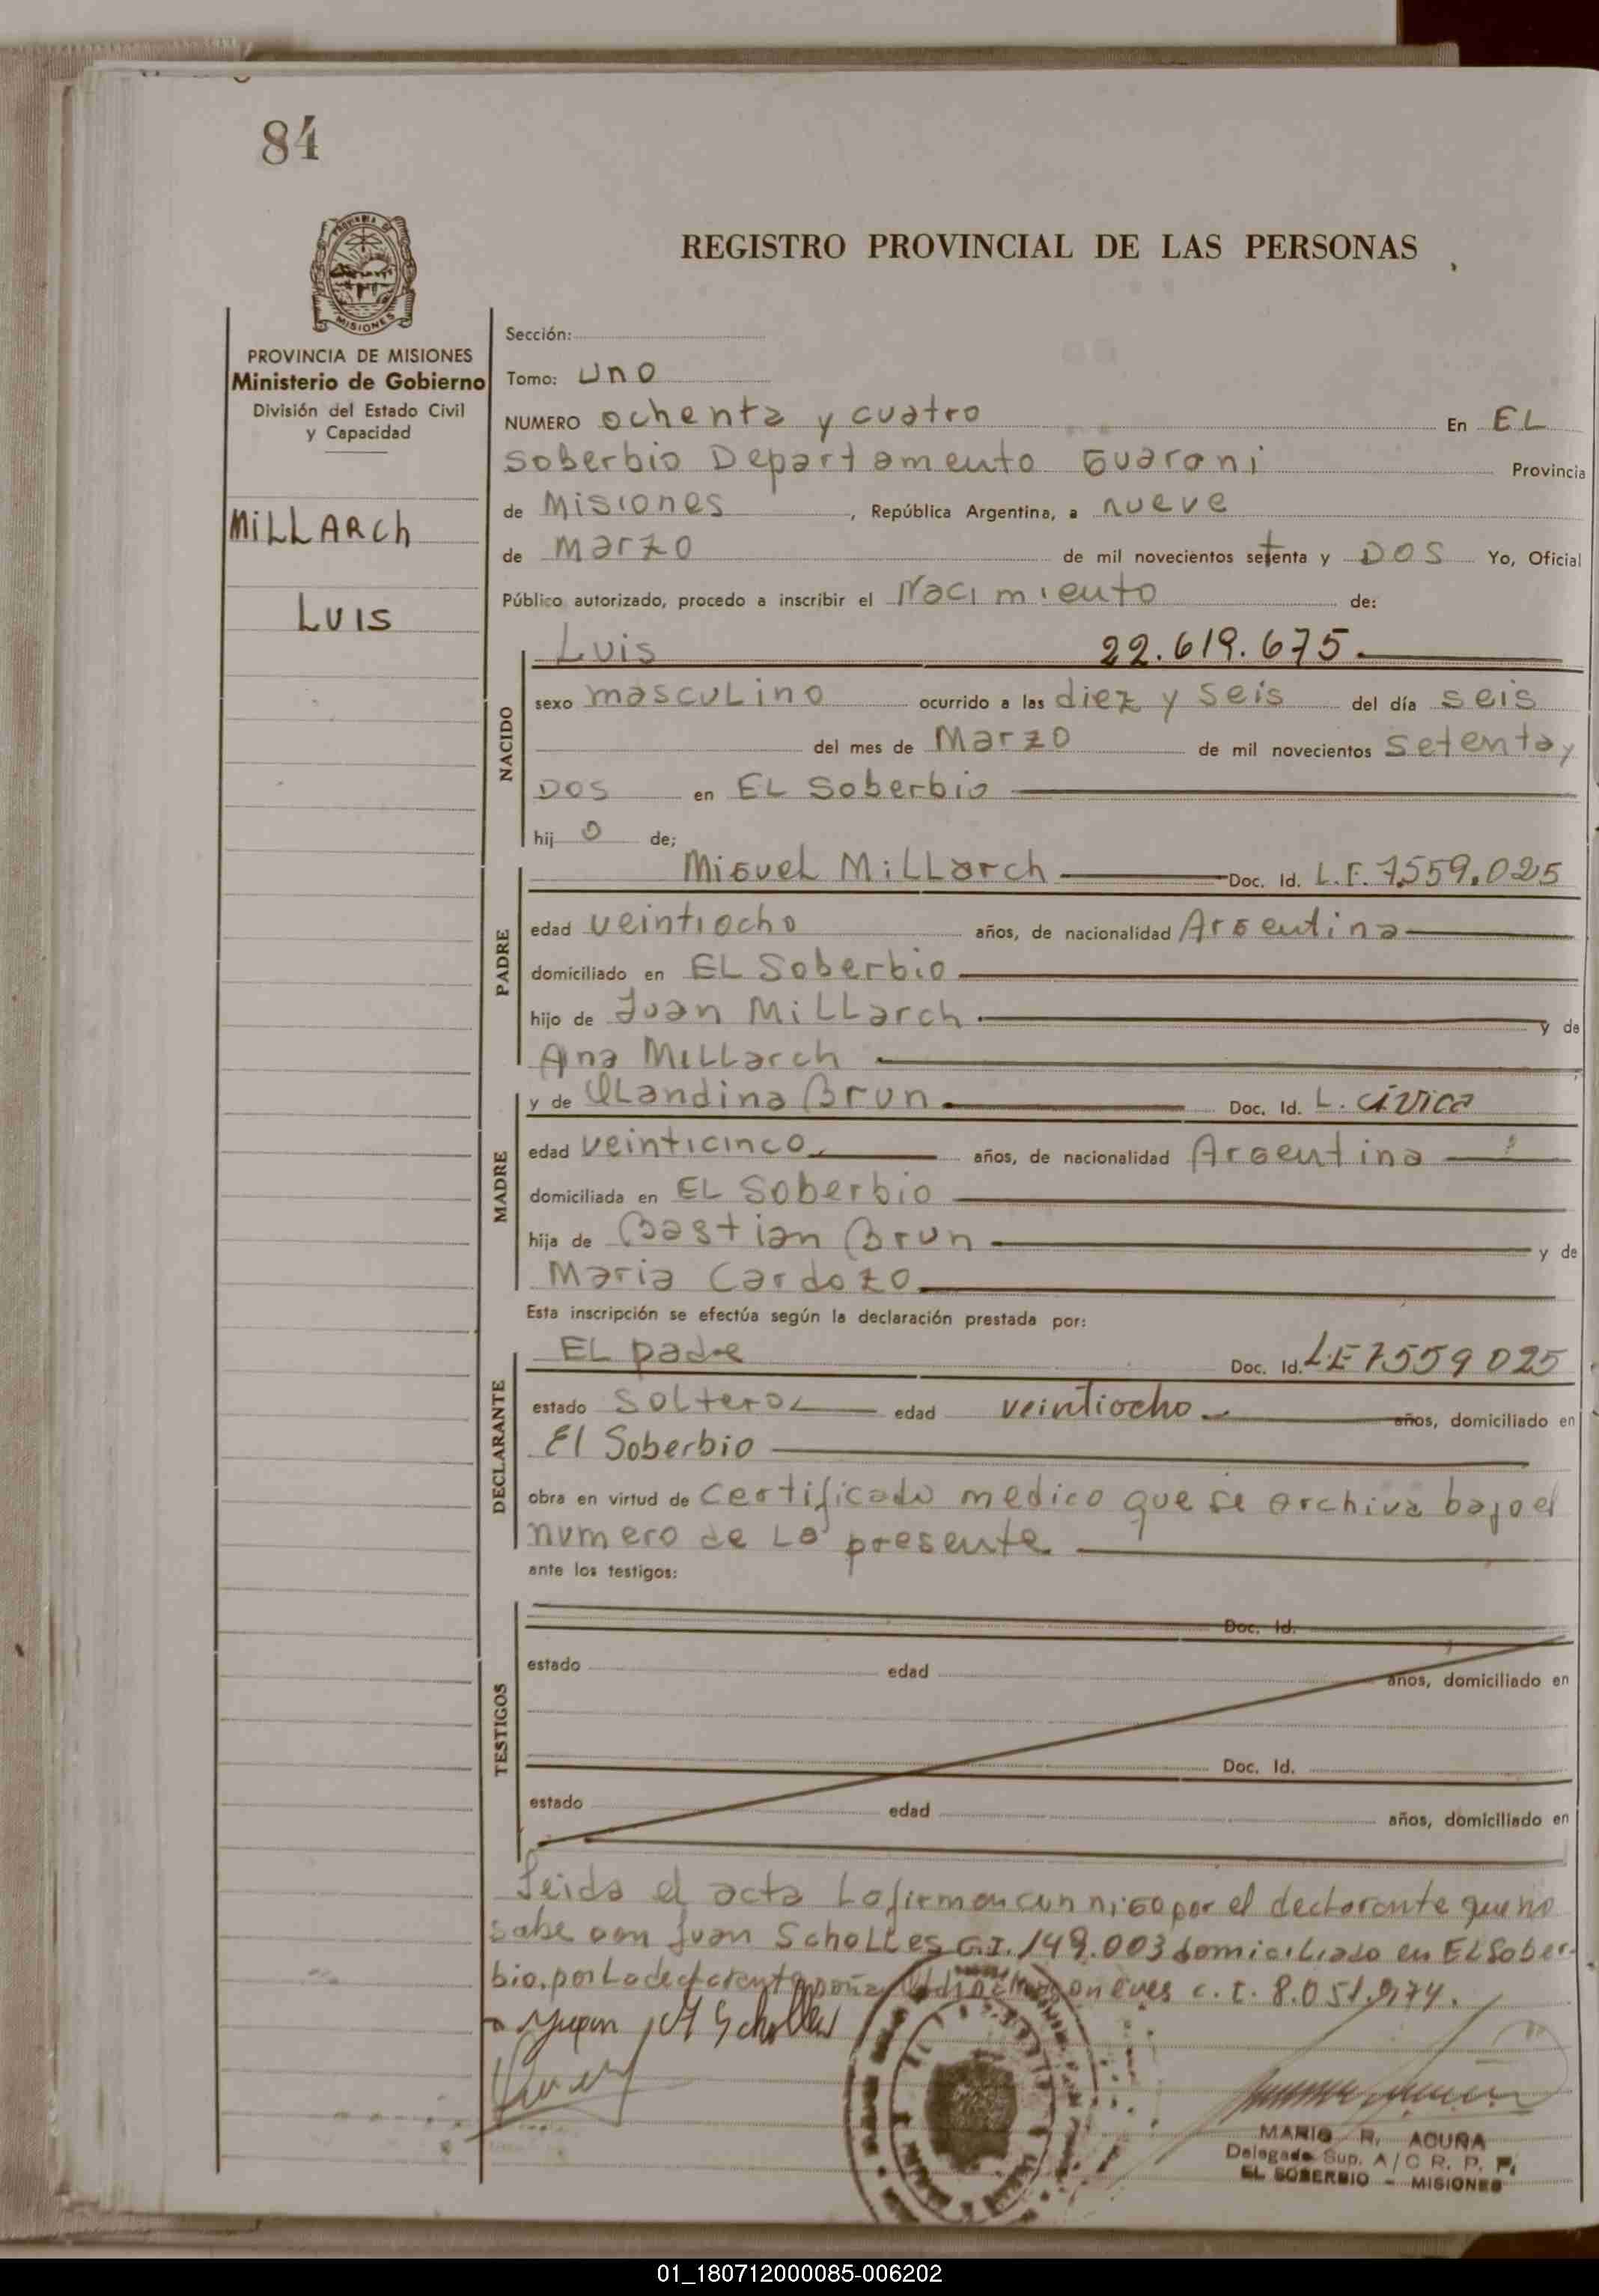 84
REGISTRO PROVINCIAL DE LAS PERSONAS
MISIONES
PROVINCIA DE MISIONES
Ministerio de Gobierno
División del Estado Civil
y Capacidad
MILLARCH
LUIS
Sección:
Tomo: UNO
NUMERO ochenta y cuatro En EL
Soberbio Departamento Guarani Provincia
de Misiones, República Argentina, a nueve
de Marzo de mil novecientos setenta y DOS Yo, Oficial
Público autorizado, procedo a inscribir el Nacimiento de:
Luis 22.619.675.
NACIDO
sexo masculino ocurrido a las diez y seis del día seis
del mes de Marzo de mil novecientos setenta y
DOS en EL Soberbio
hij o de;
PADRE
Miguel Millarch Doc. Id. L.E. 7.559.025
edad veintiocho años, de nacionalidad Argentina
domiciliado en EL Soberbio
hijo de Juan Millarch y de
Ana Millarch
MADRE
y de OLandina Brun Doc. Id. L. Cívica
edad veinticinco años, de nacionalidad Argentina
domiciliada en EL Soberbio
hija de Bastian Brun y de
Maria Cardozo
Esta inscripción se efectúa según la declaración prestada por:
DECLARANTE
EL padre Doc. Id. L.E 7559025
estado soltero edad veintiocho años, domiciliado en
El Soberbio
obra en virtud de certificado medico que se archiva bajo el
numero de La presente
ante los testigos:
TESTIGOS
Doc. Id.
estado edad años, domiciliado en
Doc. Id.
estado edad años, domiciliado en
Leida el acta La firman conmigo por el declarante que no
sabe Juan Scholles C.I. 149.003 domiciliado en EL Sober-
bio, por La declarante c. I. 8.051.974.
Juan Scholles
MARIO R. ACUÑA
Delegado Sup. A/C R. P. P.
EL SOBERBIO - MISIONES
01_180712000085-006202